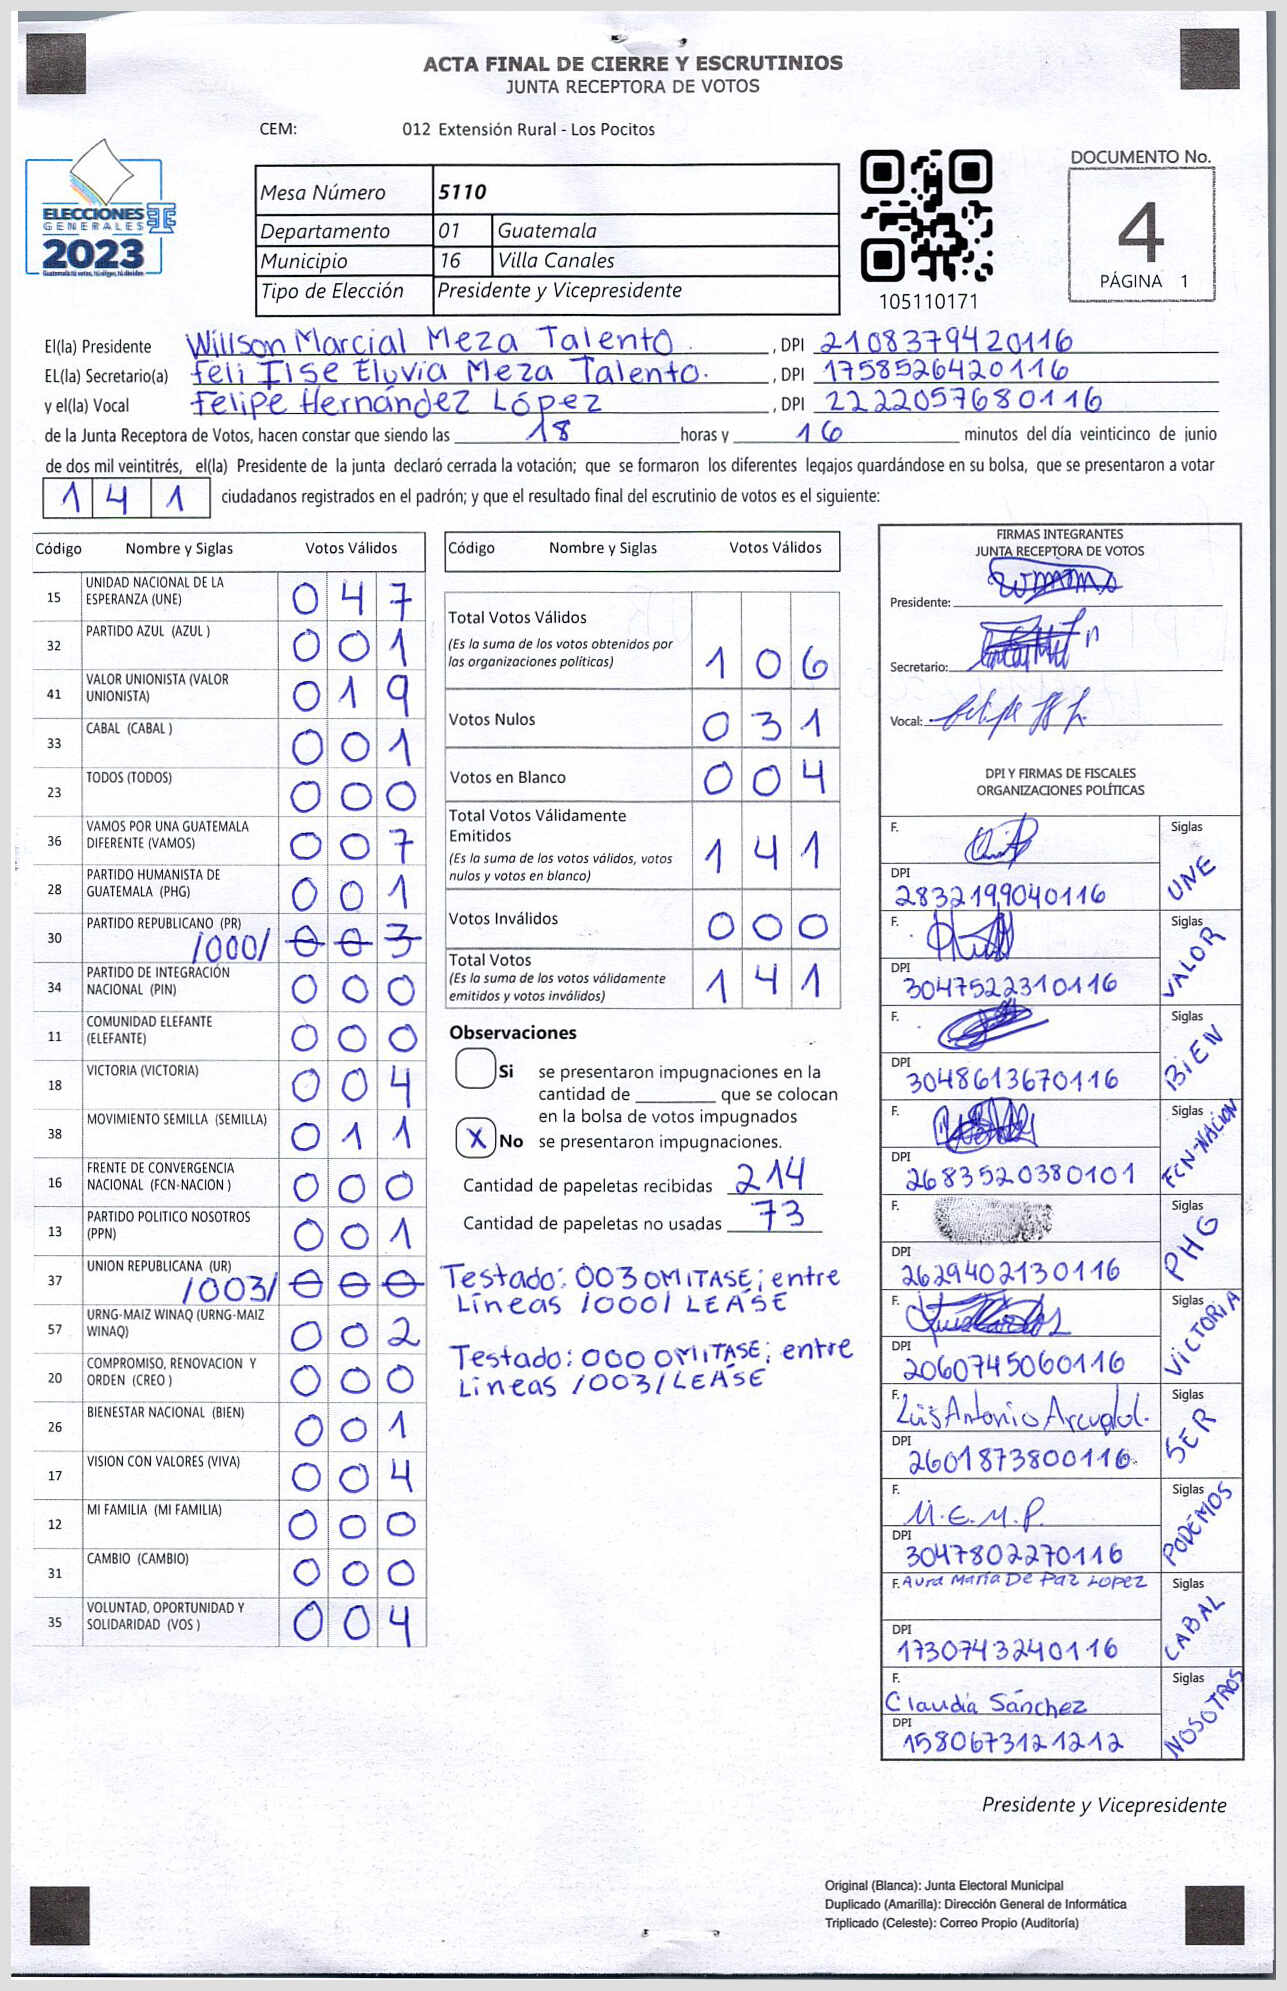 ACTA FINAL DE CIERRE Y ESCRUTINIOS
JUNTA RECEPTORA DE VOTOS
CEM: 012 Extensión Rural - Los Pocitos
ELECCIONES
GENERALES
2023
Guatemala tú votas, tú eliges, tú decides
Mesa Número 5110
Departamento 01 Guatemala
Municipio 16 Villa Canales
Tipo de Elección Presidente y Vicepresidente
105110171
DOCUMENTO No.
4
PÁGINA 1
El(la) Presidente Willson Marcial Meza Talento. , DPI 2108379420116
EL(la) Secretario(a) feli Ilse Eluvia Meza Talento. , DPI 1758526420116
y el(la) Vocal Felipe Hernández López , DPI 2222057680116
de la Junta Receptora de Votos, hacen constar que siendo las 18 horas y 16 minutos del día veinticinco de junio
de dos mil veintitrés, el(la) Presidente de la junta declaró cerrada la votación; que se formaron los diferentes legajos guardándose en su bolsa, que se presentaron a votar
141 ciudadanos registrados en el padrón; y que el resultado final del escrutinio de votos es el siguiente:
Código Nombre y Siglas Votos Válidos
15 UNIDAD NACIONAL DE LA ESPERANZA (UNE) 047
32 PARTIDO AZUL (AZUL ) 001
41 VALOR UNIONISTA (VALOR UNIONISTA) 019
33 CABAL (CABAL ) 001
23 TODOS (TODOS) 000
36 VAMOS POR UNA GUATEMALA DIFERENTE (VAMOS) 007
28 PARTIDO HUMANISTA DE GUATEMALA (PHG) 001
30 PARTIDO REPUBLICANO (PR) /000/ 003
34 PARTIDO DE INTEGRACIÓN NACIONAL (PIN) 000
11 COMUNIDAD ELEFANTE (ELEFANTE) 000
18 VICTORIA (VICTORIA) 004
38 MOVIMIENTO SEMILLA (SEMILLA) 011
16 FRENTE DE CONVERGENCIA NACIONAL (FCN-NACION ) 000
13 PARTIDO POLITICO NOSOTROS (PPN) 001
37 UNION REPUBLICANA (UR) /003/ 000
57 URNG-MAIZ WINAQ (URNG-MAIZ WINAQ) 002
20 COMPROMISO, RENOVACION Y ORDEN (CREO ) 000
26 BIENESTAR NACIONAL (BIEN) 001
17 VISION CON VALORES (VIVA) 004
12 MI FAMILIA (MI FAMILIA) 000
31 CAMBIO (CAMBIO) 000
35 VOLUNTAD, OPORTUNIDAD Y SOLIDARIDAD (VOS ) 004
Código Nombre y Siglas Votos Válidos
Total Votos Válidos
(Es la suma de los votos obtenidos por
las organizaciones políticas) 106
Votos Nulos 031
Votos en Blanco 004
Total Votos Válidamente
Emitidos
(Es la suma de los votos válidos, votos
nulos y votos en blanco) 141
Votos Inválidos 000
Total Votos
(Es la suma de los votos válidamente
emitidos y votos inválidos) 141
Observaciones
Si se presentaron impugnaciones en la
cantidad de que se colocan
en la bolsa de votos impugnados
X No se presentaron impugnaciones.
Cantidad de papeletas recibidas 214
Cantidad de papeletas no usadas 73
Testado: 003 OMITASE; entre
Líneas /000/ LEASE
Testado: 000 OMITASE; entre
Líneas /003/ LEÁSE
FIRMAS INTEGRANTES
JUNTA RECEPTORA DE VOTOS
Presidente:
Secretario:
Vocal: felipe H L.
DPI Y FIRMAS DE FISCALES
ORGANIZACIONES POLÍTICAS
F. Siglas UNE
DPI 2832199040116
F. Siglas VALOR
DPI 3047522310116
F. Siglas BIEN
DPI 3048613670116
F. Siglas FCN-NACIÓN
DPI 2683520380101
F. Siglas PHG
DPI 2629402130116
F. Siglas VICTORIA
DPI 2060745060116
F. Luis Antonio Siglas SER
DPI 2601873800116
F. M.E.M.P. Siglas PODEMOS
DPI 3047802270116
F. Aura María De Paz Lopez Siglas CABAL
DPI 1730743240116
F. Claudia Sánchez Siglas NOSOTROS
DPI 1580673121212
Presidente y Vicepresidente
Original (Blanca): Junta Electoral Municipal
Duplicado (Amarilla): Dirección General de Informática
Triplicado (Celeste): Correo Propio (Auditoría)